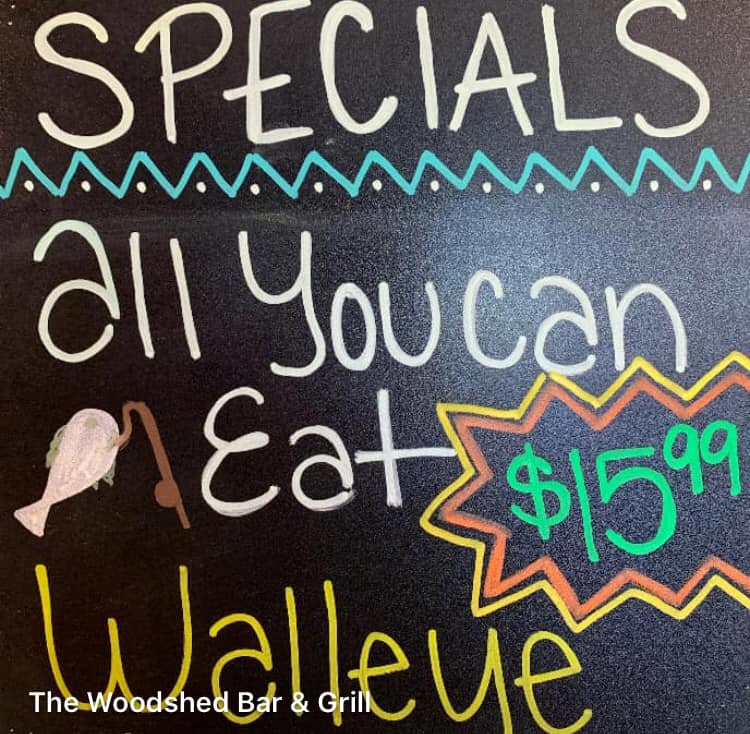 SPECIALS
all You can
Eat
$15.99
Walleye
The Woodshed Bar & Grill